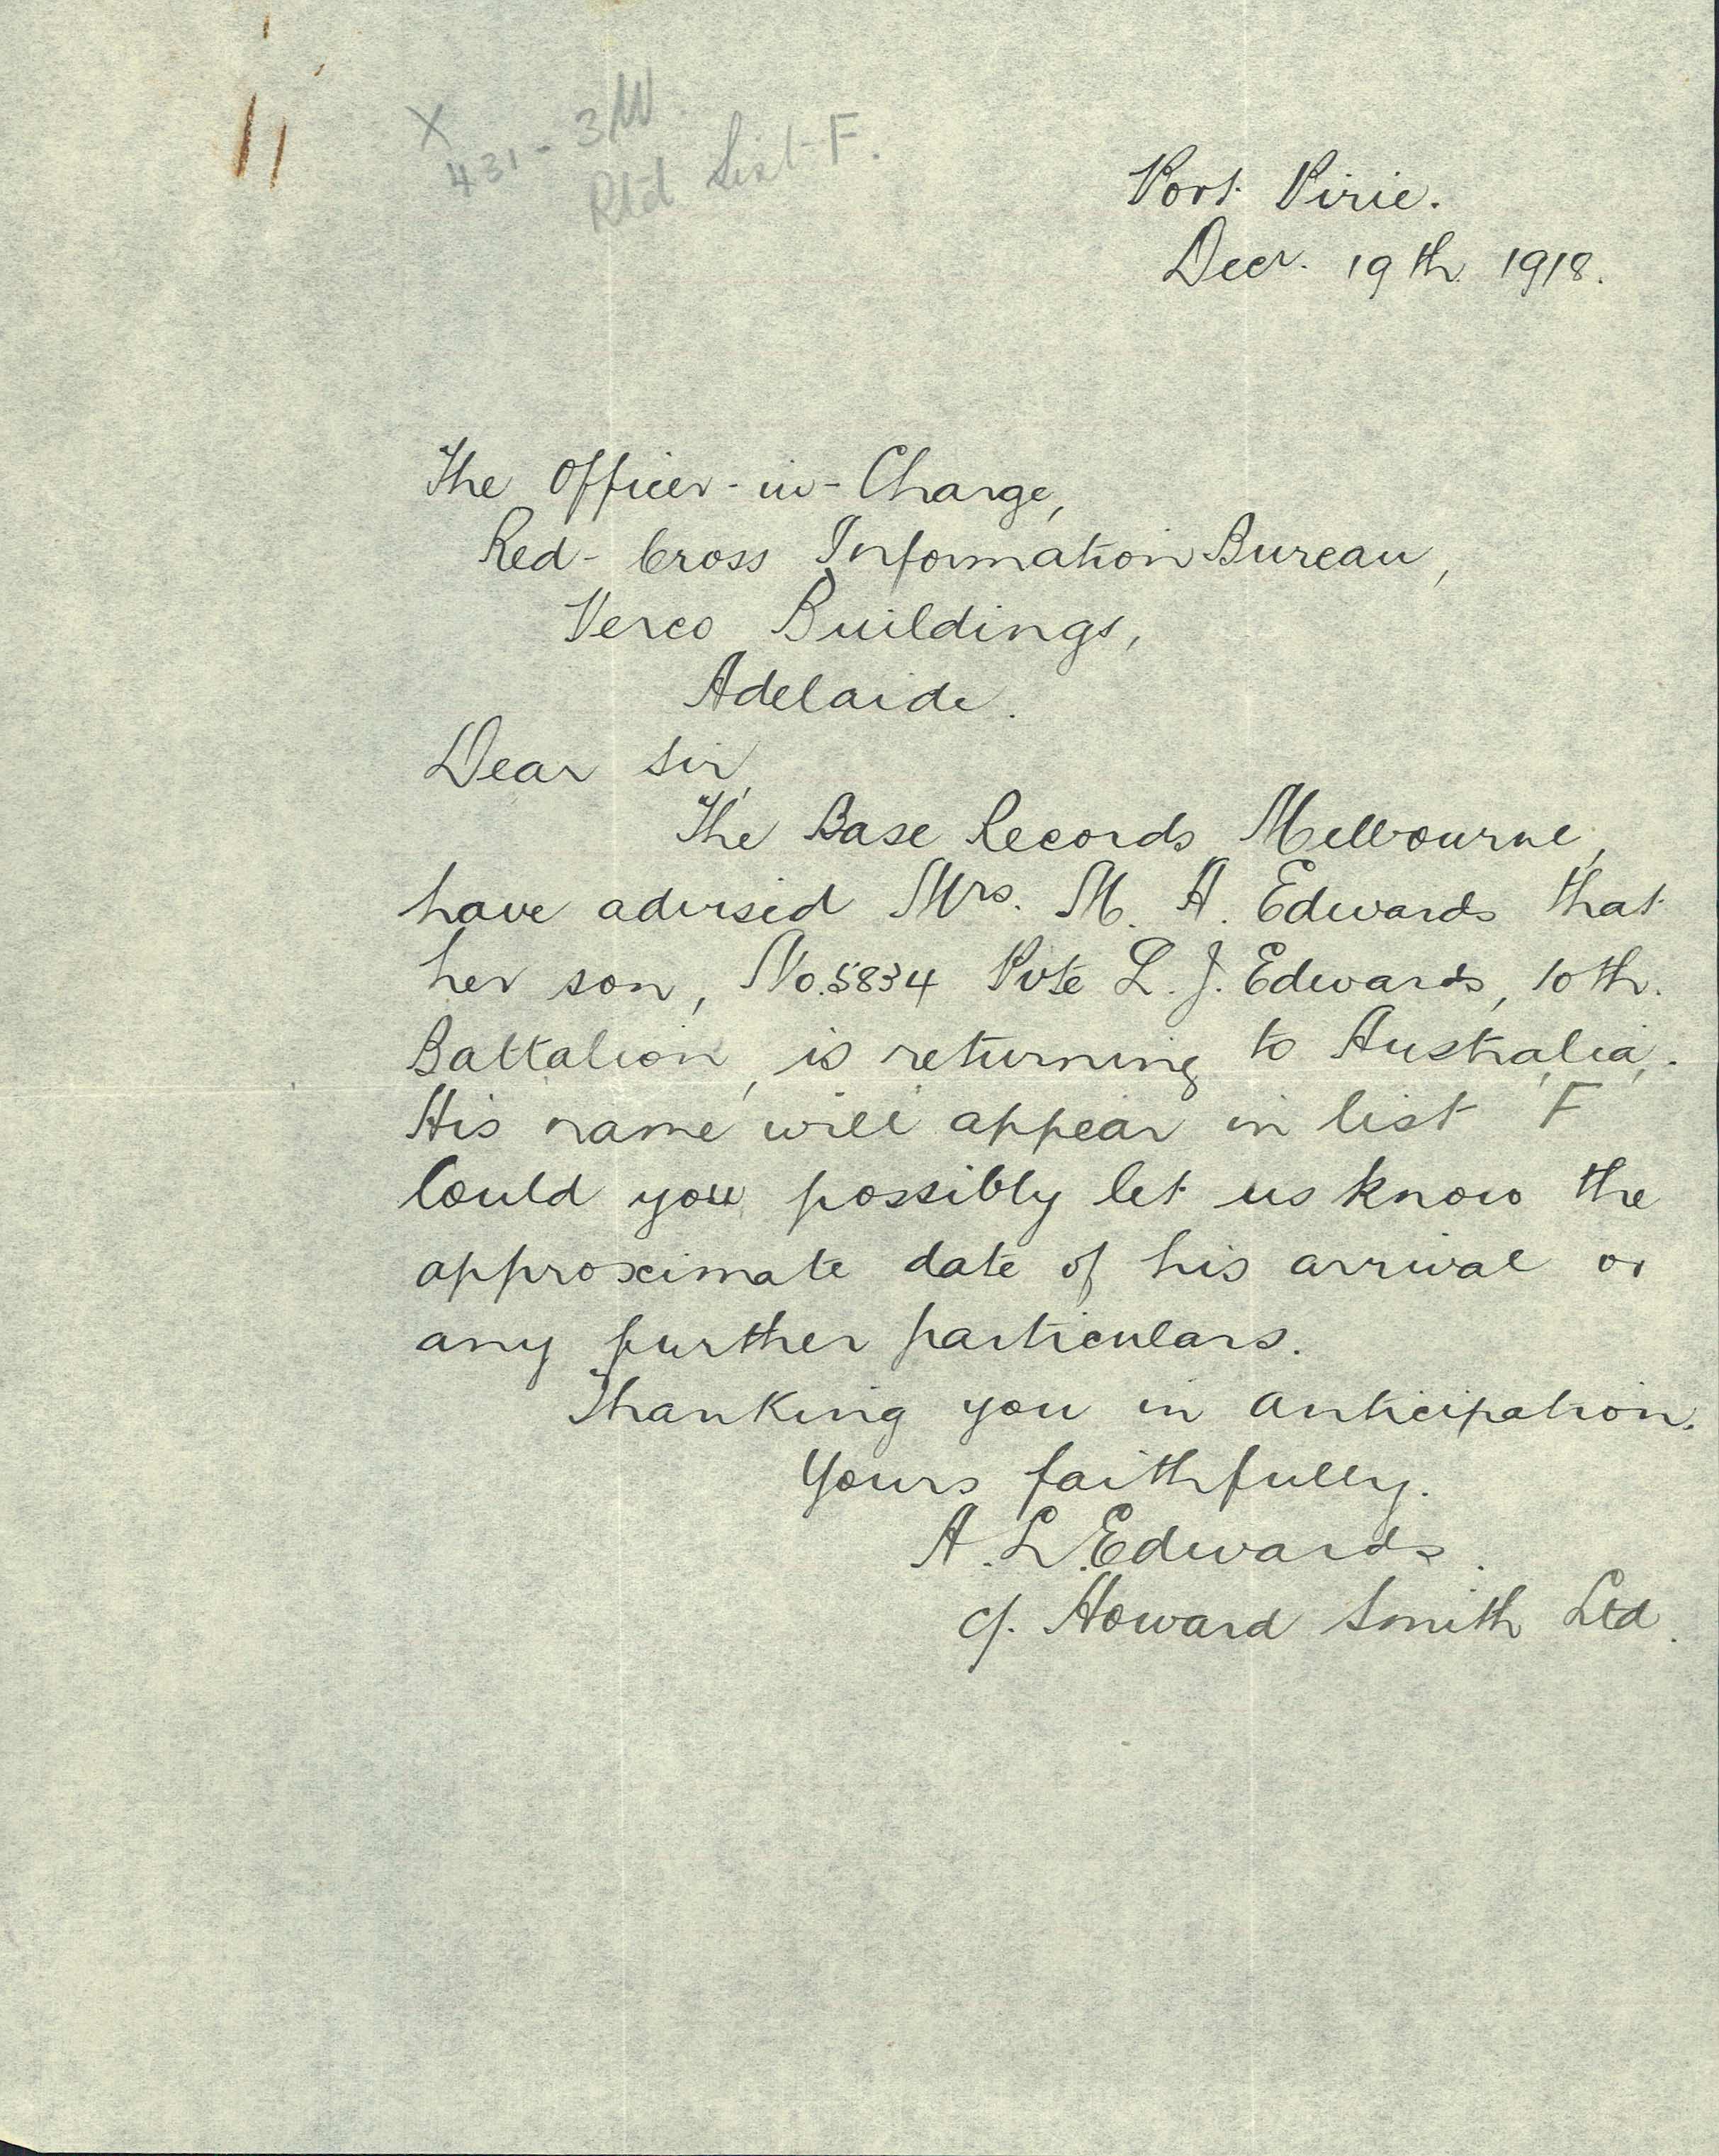 X
431 - 3W
Rtd List F.
Port Pirie.
Decr. 19th 1918.
The Officer-in-Charge,
Red-Cross Information Bureau,
Verco Buildings,
Adelaide.
Dear Sir,
The Base Records Melbourne,
have advised Mrs. M. A. Edwards that
her son, No. 5834 Pvte L. J. Edwards, 10th.
Battalion, is returning to Australia.
His name will appear in list 'F'
Could you possibly let us know the
approximate date of his arrival or
any further particulars.
Thanking you in anticipation.
Yours faithfully.
A. L. Edwards.
c/. Howard Smith Ltd.